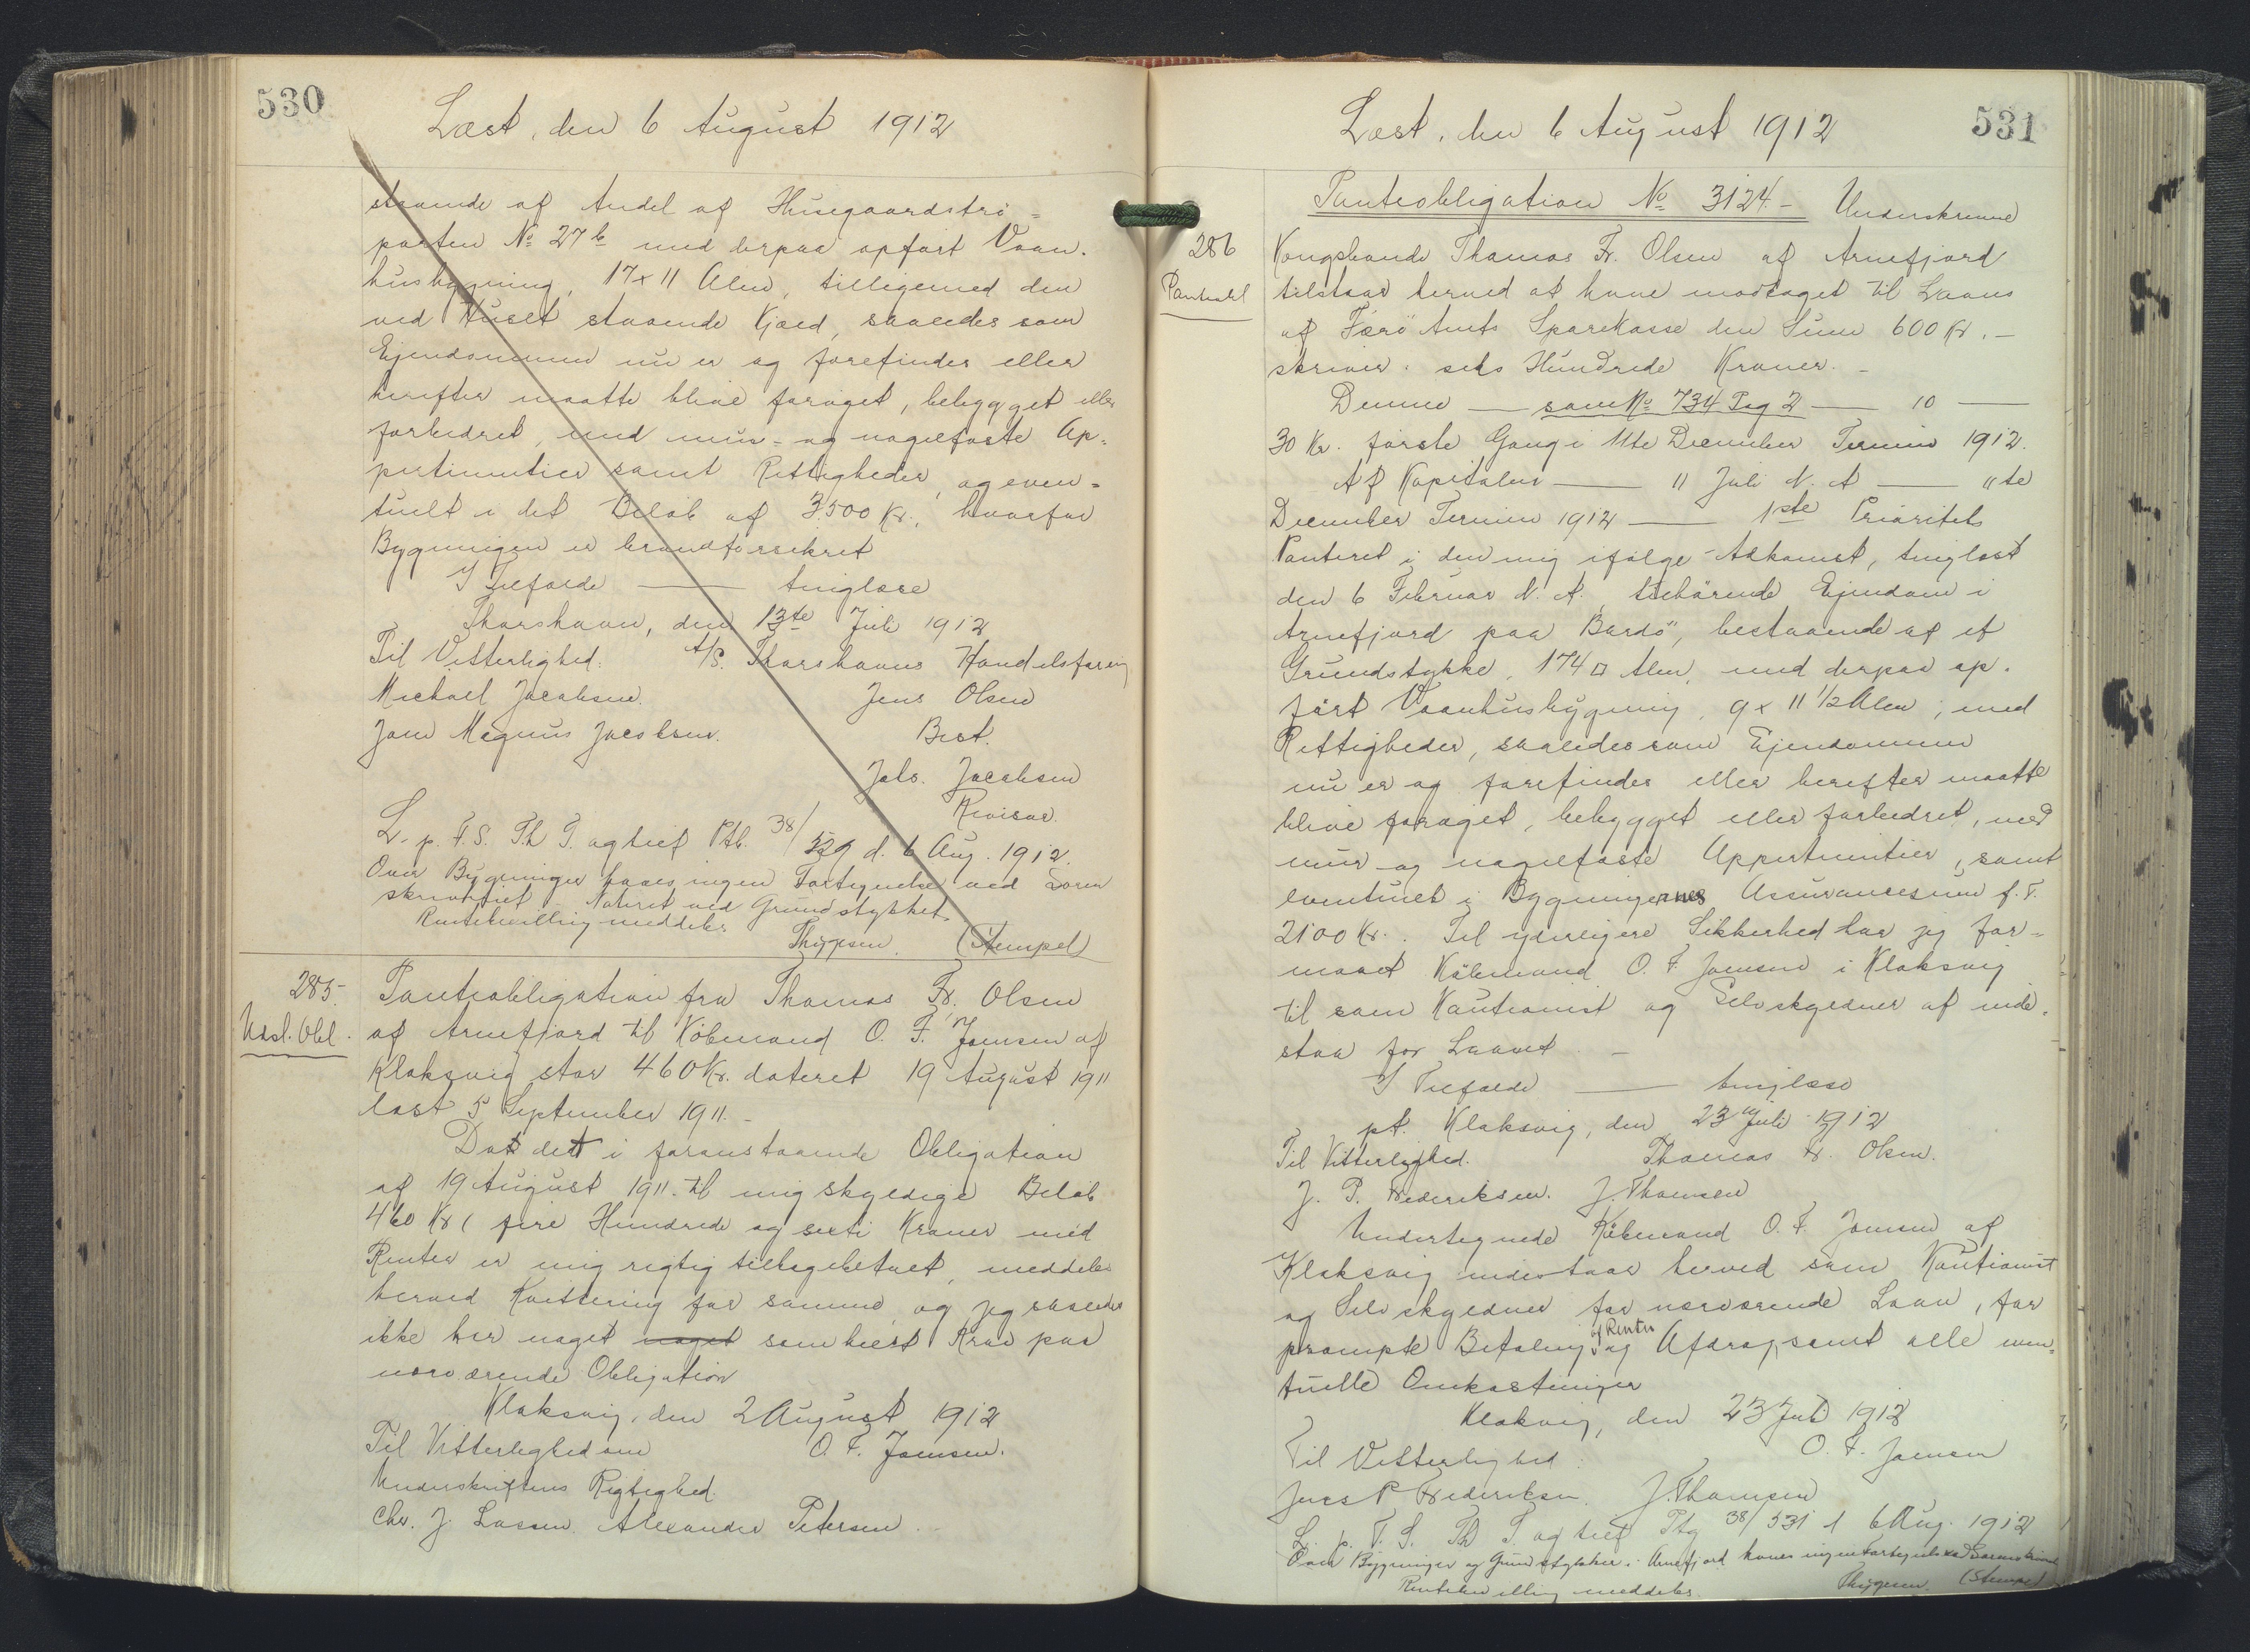 530
Læst, den 6 August 1912
staaende af Andel af Husegaardströ=
parten No 27b med derpaa opfört Vaan-
husbygning, 17 x 11 Alen, tilligemed den
ved Huset staaende Kjæld, saaledes som
Ejendommen nu er og forefindes eller
herefter maatte blive foröget, bebygget eller
forbedret, med mur- og nagelfaste Ap=
pertinentier samt Rettigheder, og even=
tuelt i det Belöb af 3500 Kr., hvorfor
Bygningen er brandforsikret
I Tilfælde — tinglæse
Thorshavn, den 13te Juli 1912
Til Vitterlighed: A/S. Thorshavns Handelsforening
Michael Jacobsen. Jens Olsen
Jone Magnus Jacobsen. Best.
Jobs. Jacobsen
Revisor.
L. p. F. S. Th T. og tilf Ptb. 38/529 d. 6 Aug. 1912.
Over Bygningen haves ingen Fortegnelse ved Soren
skriveriet – Noteret ved Grundstykket.
Rentebevilling meddeles.
Thygesen. (Stempel)
285.
Udsl. Obl.
Panteobligation fra Thomas Fr. Olsen
af Arnefjord til Köbmand O. F. Joensen af
Klaksvig stor 460 Kr. dateret 19 August 1911
læst 5 September 1911. –
Da det i foranstaaende Obligation
af 19 August 1911. til mig skyldige Belöb
460 Kr ( fire Hundrede og sexti Kroner med
Renter er mig rigtig tilbagebetalt, meddeles
herved Kvittering for samme, og jeg saaledes
ikke har noget noget somhelst Krav paa
nærværende Obligation
Klaksvig, den 2 August 1912
Til Vitterlighed om O. F. Joensen.
Underskriftens Rigtighed.
Chr. J. Lassen. Alexander Petersen.
531
Læst, den 6 August 1912
Panteobligation No 3124. – Underskrevne
286
Panteobl
Kongsbonde Thomas Fr. Olsen af Arnefjord
tilstaar herved at have modtaget til Laans
af Færö Amts Sparekasse den Sum 600 Kr. –
skriver: seks Hundrede Kroner. –
Denne — som No 734 Pag 2 — 10 —
30 Kr. förste Gang i 11te December Termin 1912.
Af Kapitalen — 11 Juli N. A — 11te
December Termin 1912 — 1ste Prioritets
Panteret i den mig ifölge Adkomst, tinglæst
den 6 Februar N. A., tilhörende Ejendom i
Arnefjord paa Bordö, bestaaende af et
Grundstykke, 174 □ Alen, med derpaa op-
fört Vaanhusbygning, 9 x 11 1/2 Alen, med
Rettigheder, saaledes som Ejendommen
nu er og forefindes eller herefter maatte
blive foröget, bebygget eller forbedret, med
mur- og nagelfaste Appertinentier, samt
eventuelt i Bygningernes Assurancesum f. T.
2100 Kr. . Til yderligere Sikkerhed har jeg for=
maaet Köbmand O. F. Joensen i Klaksvig
til som Kautionist og Selvskyldner at inde-
staa for Laanet –
I Tilfælde — tinglæse
pt. Klaksvig, den 23 Juli 1912
Til Vitterlighed. Thomas Fr. Olsen.
J. P. Frederiksen. J. Thomsen
Undertegnede Köbmand O. F. Joensen af
Klaksvig indestaar herved som Kautionist
og Selvskyldner for nærværende Laan, for
prompte Betaling af Renter og Afdrag, samt alle even-
tuelle Omkostninger
Klaksvig, den 23 Juli 1912
Til Vitterlighed: O. F. Joensen
Jens P Frederiksen. J. Thomsen
L. p. F. S. Th T. og tilf Ptg 38/531 d 6 Aug. 1912
Over Bygninger og Grundstykker i Arnefjord haves ingen Fortegnelse ved Sorenskriveriet
Rentebevilling meddeles. Thygesen. (Stempel)